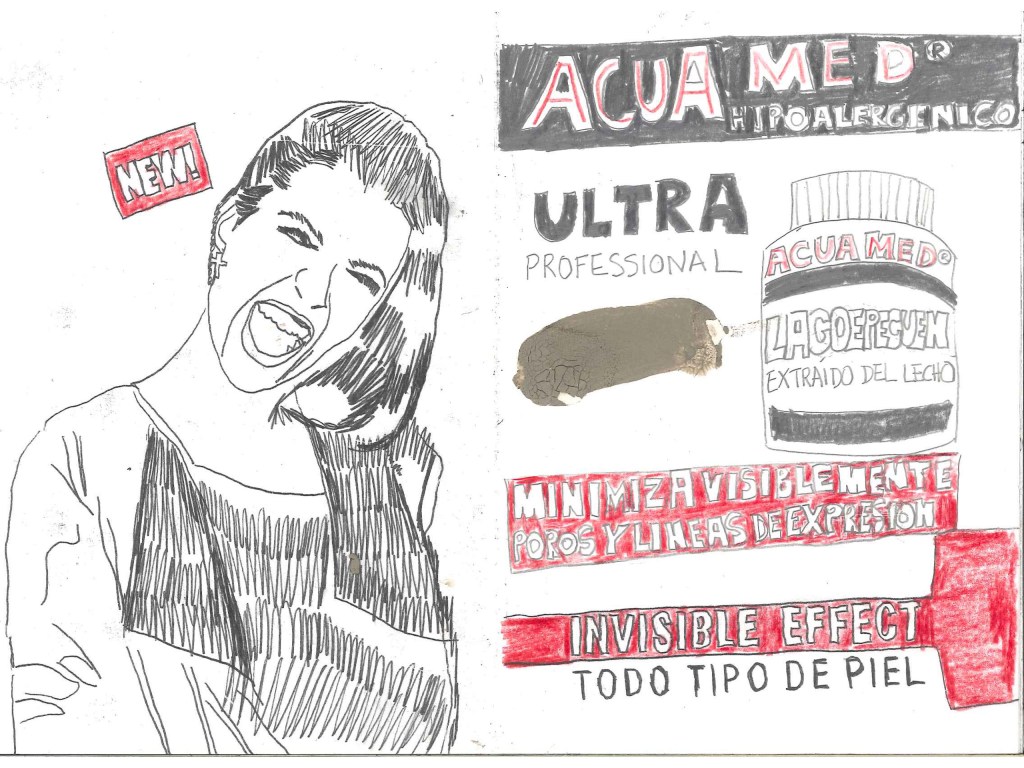 NEW!
ACUA MED®
HIPOALERGENICO
ULTRA
PROFESSIONAL
ACUA MED®
LAGOEPECUEN
EXTRAIDO DEL LECHO
MINIMIZA VISIBLEMENTE
POROS Y LINEAS DE EXPRESION
INVISIBLE EFFECT
TODO TIPO DE PIEL